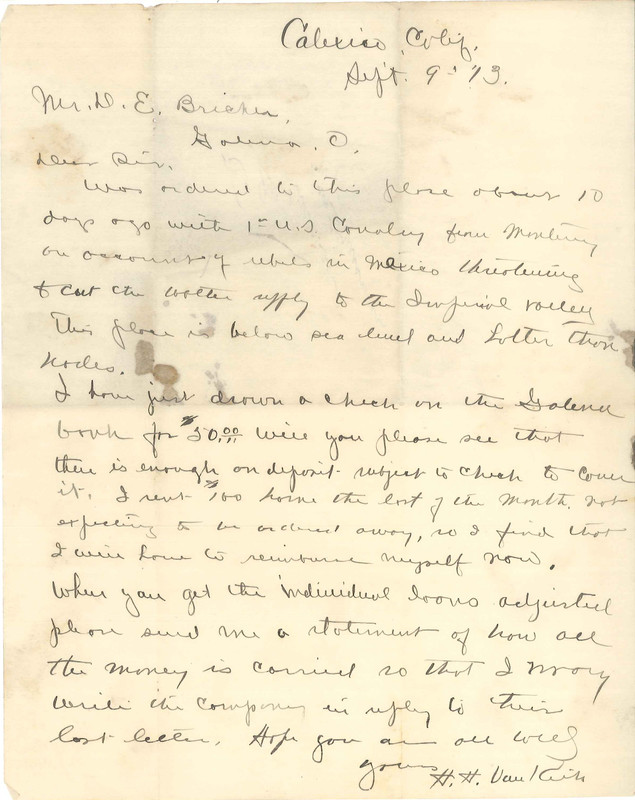 Calexico, Calif,
Sept. 9" '13.
Mr. D. E. Bricker,
Galena, O,
Dear Sir,
Was ordered to this place about 10
days ago with 1st U.S. Cavalry from Monterey
on account of rebels in Mexico threatening
to cut the water supply to the Imperial Valley
This place is below sea level and hotter than
hades.
I have just drawn a check on the Galena
bank for $50.00 will you please see that
there is enough on deposit subject to check to cover
it. I sent $100 home the last of the month not
expecting to be ordered away, so I find that
I will have to reimburse myself now.
When you get the individual loans adjusted
please send me a statement of how all
the money is carried so that I may
write the company in reply to their
last letter. Hope you are all well
yours
H. H. Van Kirk